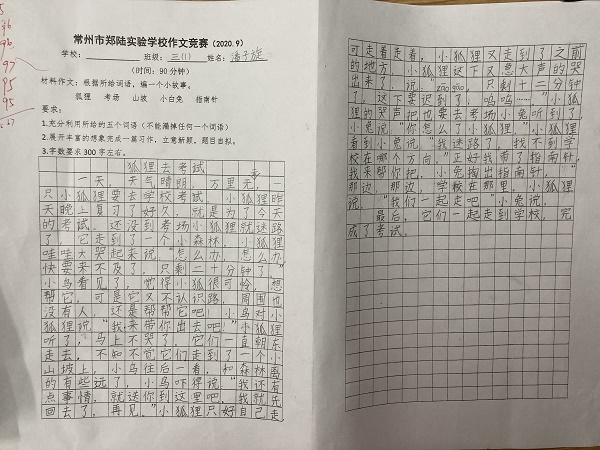 常州市郑陆实验学校作文竞赛（2020.9）
学校： 班级：三(1) 姓名：潘子旋
（时间：90分钟）
材料作文：根据所给词语，编一个小故事。
狐狸 考场 山坡 小白兔 指南针
要求：
1.充分利用所给的五个词语（不能漏掉任何一个词语）
2.展开丰富的想象完成一篇习作，立意新颖，题目自拟。
3.字数要求300字左右。
狐狸去考试
一天，天气晴朗，万里无，一
只小狐狸要去学校考试，小狐狸昨
天晚上复习了好久，就是为了今天
的考试。还没到考场小狐狸就迷路
了，它走到了一个小森林，小狐狸
哇哇大哭起来说，“怎么办，怎么办，
快要来不及了，只剩二十分钟了”
小鸟看见了，觉得小狐狸很可怜，想
帮它，可是它又不认识路，周围也
没有人，还是帮帮它吧！小鸟对小
狐狸说“我来带你出去吧！”小狐狸
听了，马上不哭了，它们一直朝东
走去，不知不觉它们走到了一个小
山坡上，小鸟往后一看，和森林离
的有些远了，小鸟吓得说“我还有
点事情，就送你到这里吧，我就先
回去了，再见。”小狐狸只好自己走
可走着走着，小狐狸又走到了之前
的地方，小狐狸这下又急大声的哭
出来了，说“zāo gāo，只剩十二分钟
了，这下要迟到了，呜呜……”小狐
狸的哭声把也要去考场小兔听到了，
小兔说“你怎么了小狐狸？”小狐狸
看到小兔说“我迷路了，找不到学
校在哪个方向。”正好我带了指南针，
我来帮你把，小兔掏出指南针，“
那边，那边，学校在那里，小狐狸
说，“我们一起走吧”小兔说，
最后，它们一起走到学校，完
成了考试。